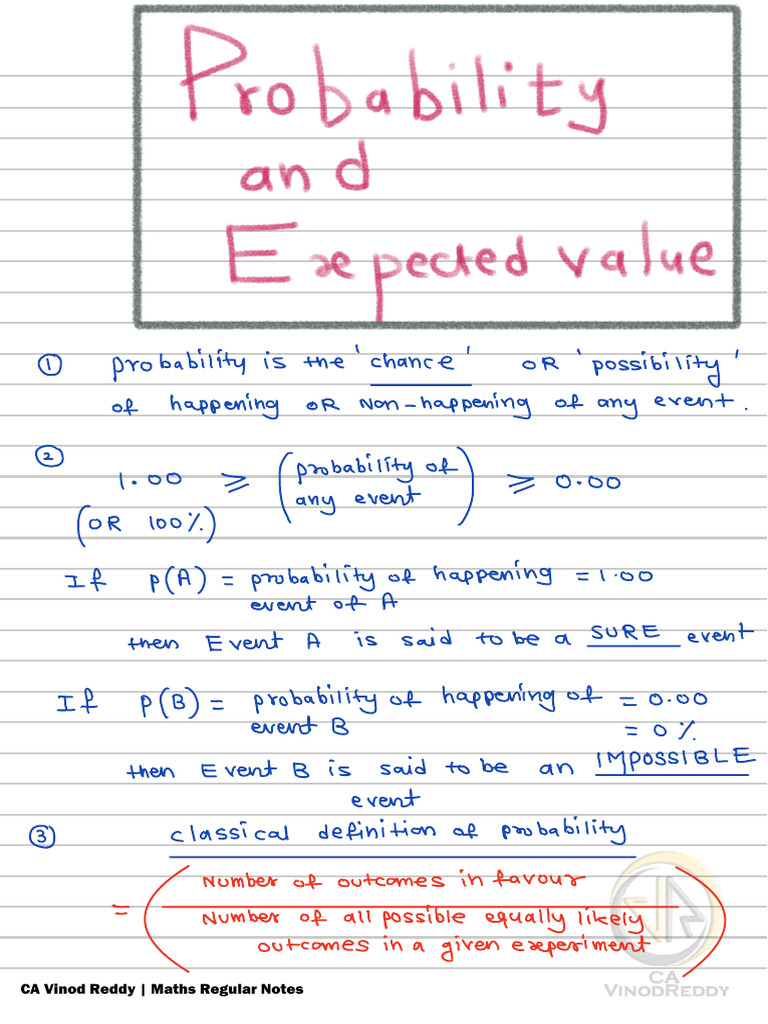 Probability
and
Expected value
① probability is the 'chance' OR 'possibility'
of happening OR Non-happening of any event.
②
1.00 ≥ (probability of any event) ≥ 0.00
(OR 100%)
If P(A) = probability of happening = 1.00
event of A
then Event A is said to be a SURE event
If P(B) = probability of happening of = 0.00
event B = 0%
then Event B is said to be an IMPOSSIBLE
event
③ classical definition of probability
Number of outcomes in favour
=
Number of all possible equally likely
outcomes in a given experiment
CA
VINODREDDY
CA Vinod Reddy | Maths Regular Notes